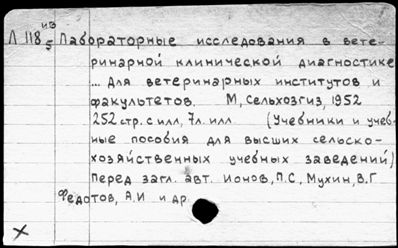 из
Л 118/5 Лабораторные исследования в вете-
ринарной клинической диагностике
... Для ветеринарных институтов и
факультетов. М, Сельхозгиз, 1952
252 стр. с илл, 7л. илл (Учебники и учеб-
ные пособия для высших сельско-
хозяйственных учебных заведений)
Перед загл. авт. Ионов, П.С, Мухин, В.Г
Федотов, А.И и др